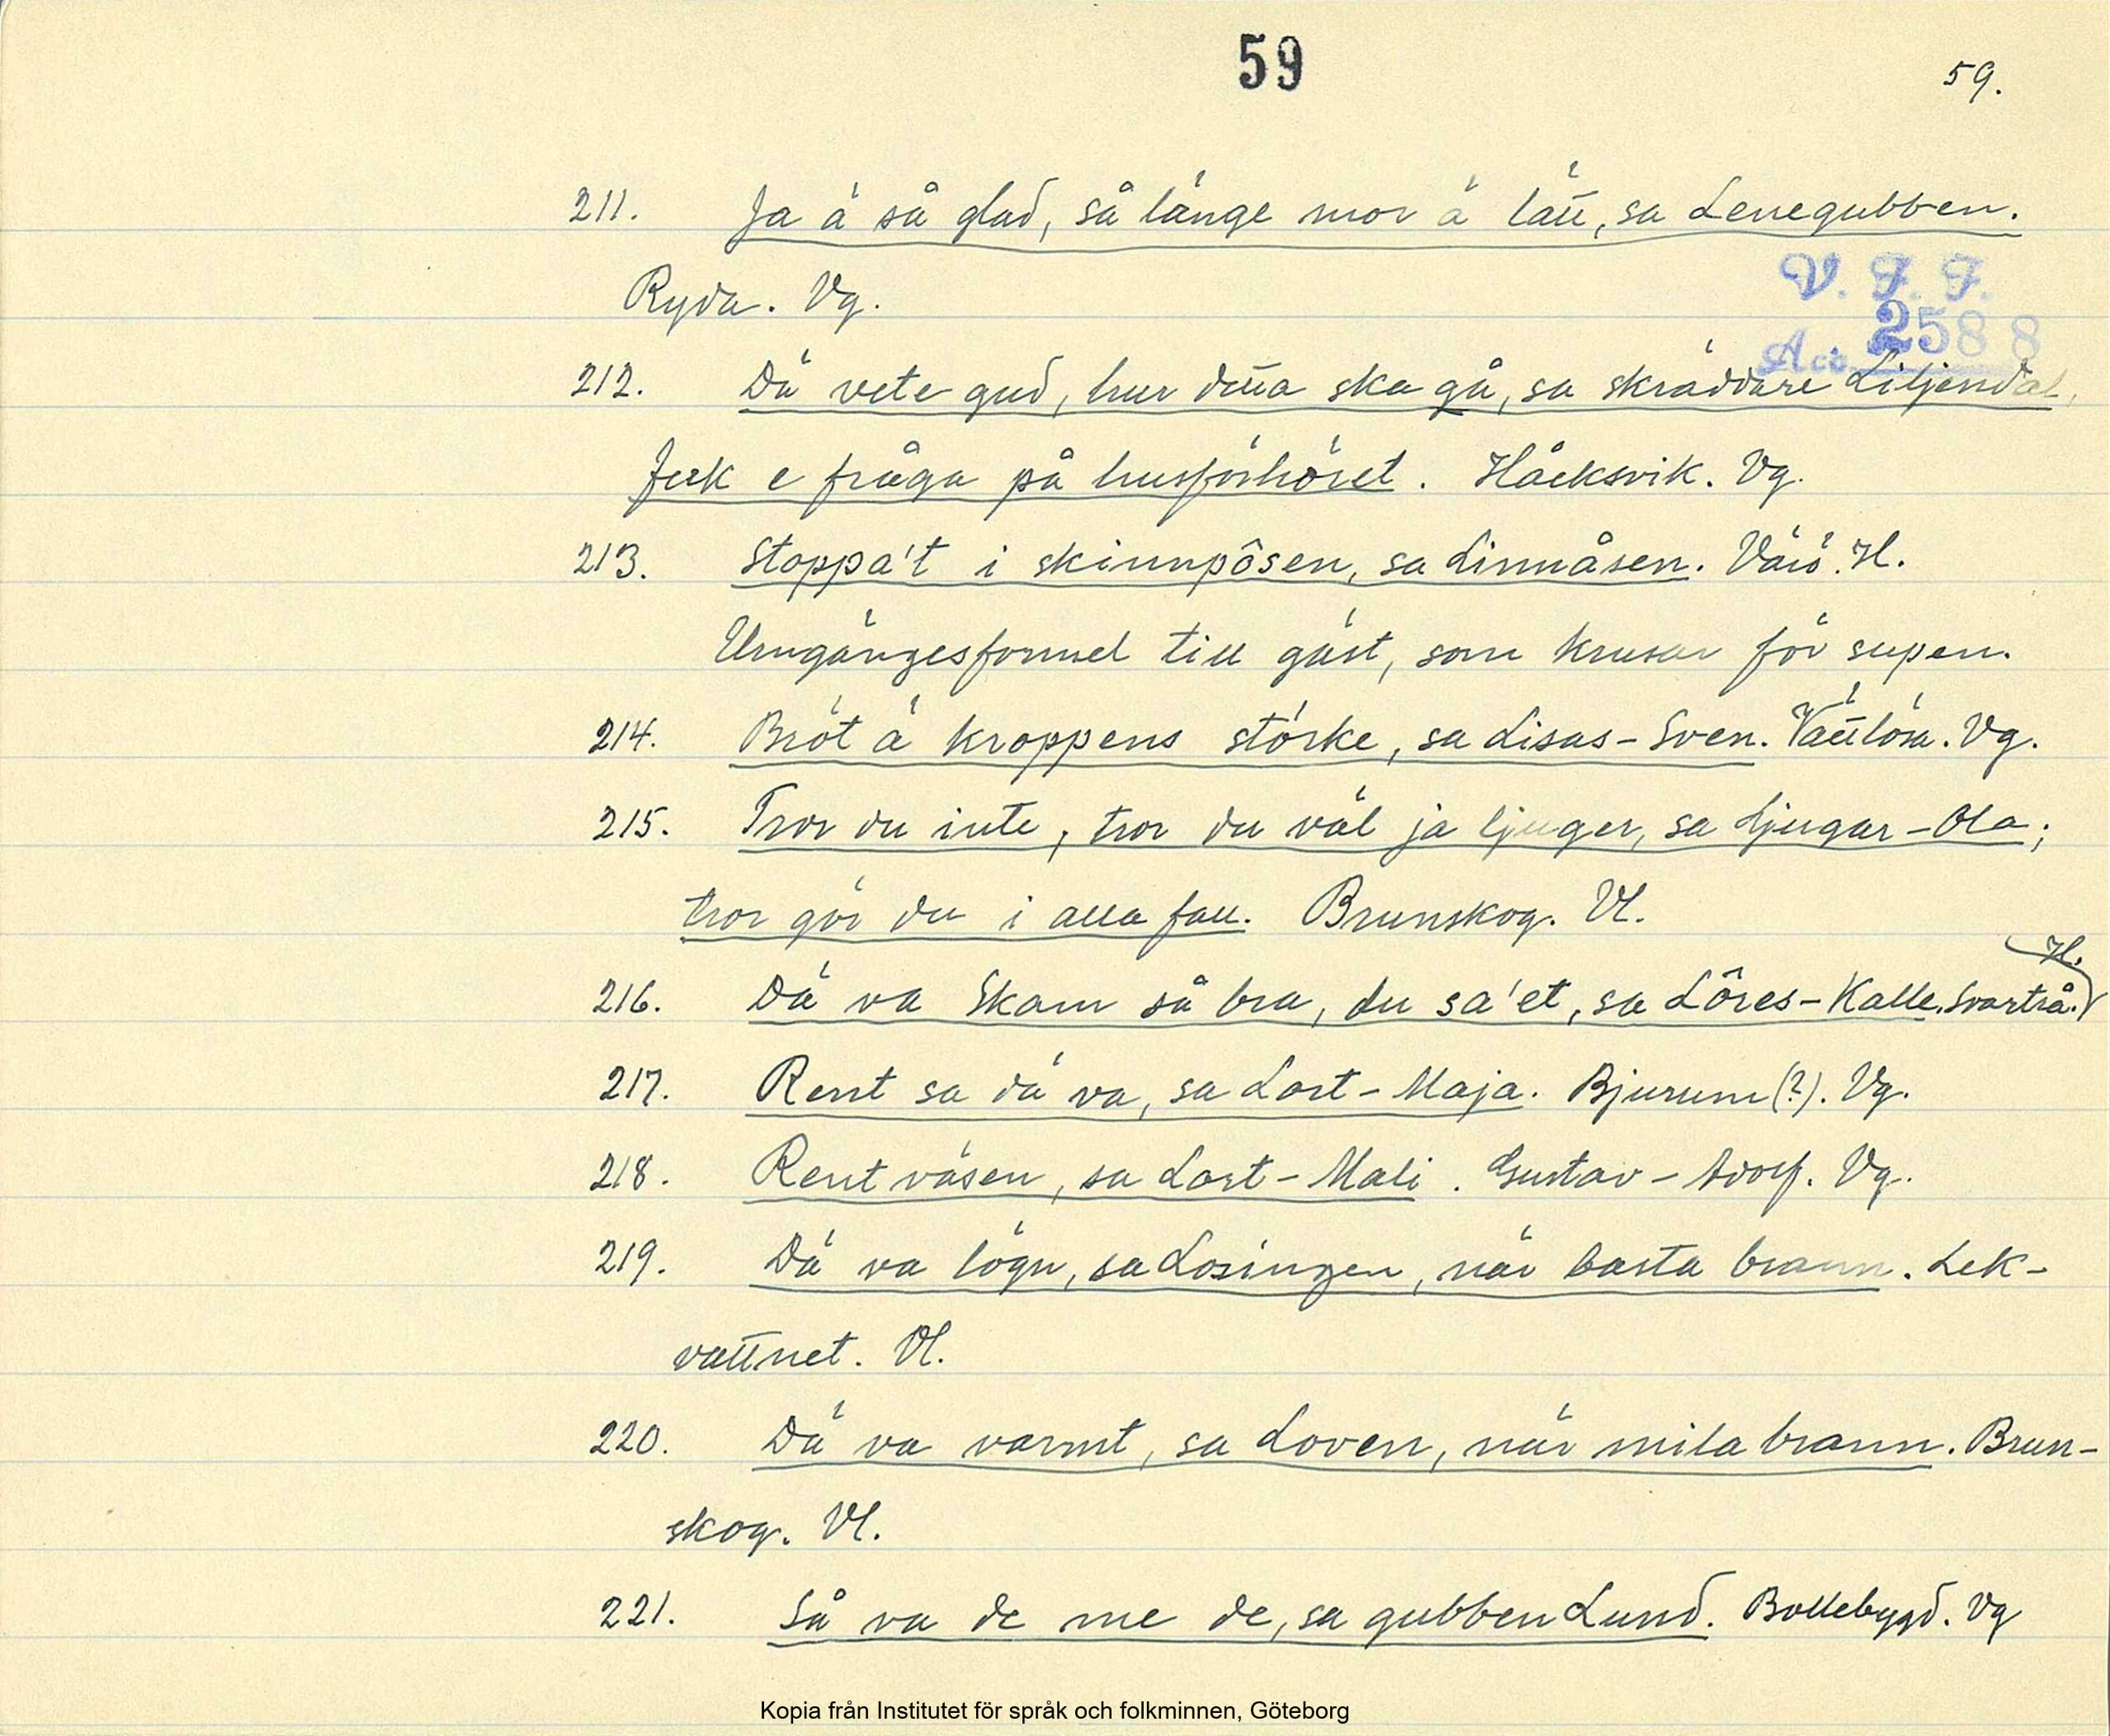 59
59.
211. Ja ä så glad, så länge mor ä lätt, sa Lenegubben.
Ryda. Vg.
V. F. F.
Acc. 2588
212. Dä vete gud, hur detta ska gå, sa skräddare Liljendal,
feck e fråga på husförhöret. Håcksvik. Vg.
213. Stoppa't i skinnpôsen, sa Linnåsen. Värö. H.
Umgängesformel till gäst, som krusar för supen.
214. Bröt ä kroppens störke, sa Lisas-Sven. Vättlösa. Vg.
215. Tror du inte, tror du väl ja ljuger, sa Ljugar-Ola;
tror gör du i alla fall. Brunskog. Vl.
H.
216. Dä va Skam så bra, du sa'et, sa Lôres-Kalle. Svartrå.
217. Rent sa dä va, sa Lort-Maja. Bjurum (?). Vg.
218. Rent väsen, sa Lort-Mali. Gustav-Adolf. Vg.
219. Dä va lögn, sa Losingen, när basta brann. Lek-
vattnet. Vl.
220. Dä va varmt, sa Loven, när mila brann. Brun-
skog. Vl.
221. Så va de me de, sa gubben Lund. Bollebygd. Vg
Kopia från Institutet för språk och folkminnen, Göteborg